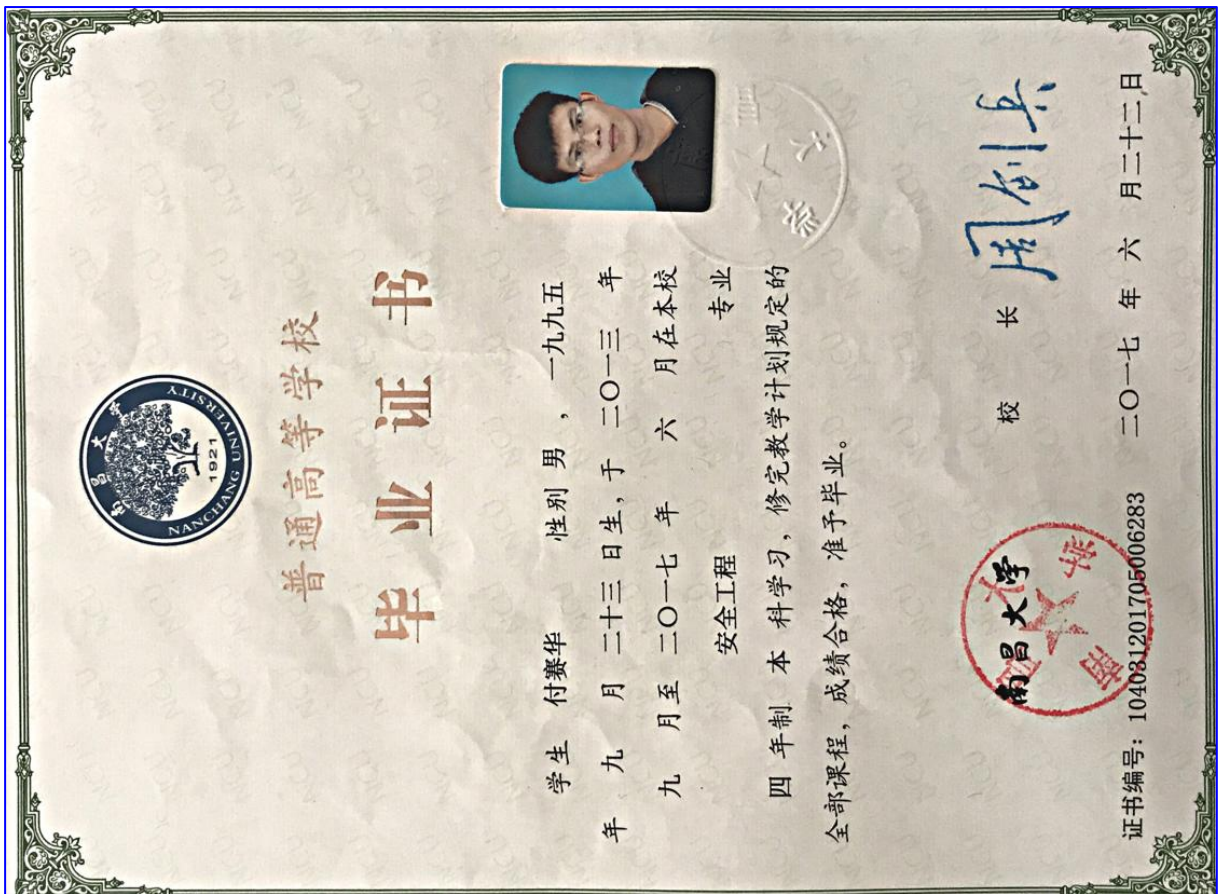 南昌大学
1921
NANCHANG UNIVERSITY
普通高等学校
毕业证书
学生 付赛华 性别 男 ， 一九九五
年 九 月 二十三 日生，于 二〇一三 年
九 月至 二〇一七 年 六 月在本校
安全工程 专业
四 年制 本 科学习，修完教学计划规定的
全部课程，成绩合格，准予毕业。
校 长 周创兵
南昌大学
南昌大学
证书编号：104031201705006283 二〇一七 年 六 月二十二日